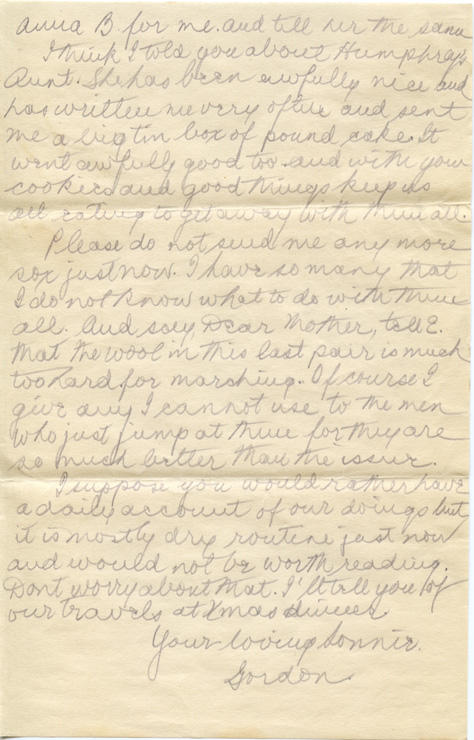 Anna B. for me. and tell her the same
I think I told you about Humphrey's
Aunt. She has been awfully nice and
has written me very often and sent
me a big tin box of pound cake. It
went awfully good too. and with your
cookies and good things keep us
all eating to get away with them all.
Please do not send me any more
sox just now. I have so many that
I do not know what to do with them
all. And say, Dear Mother, tell E.
that the wool in this last pair is much
too hard for marching. Of course I
give any I cannot use to the men
who just jump at them for they are
so much better than the issue.
I suppose you would rather have
a daily account of our doings but
it is mostly dry routine just now
and would not be worth reading.
Dont worry about that. I'll tell you of
our travels at Xmas dinner.
Your loving Sonnie.
Gordon.